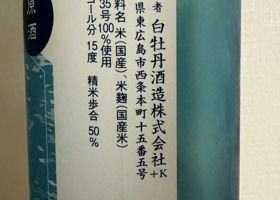 原酒
者 白牡丹酒造株式会社
+K
県東広島市西条本町十五番五号
料名 米(国産)、米麹(国産米)
35号100%使用
コール分 15度 精米歩合 50%